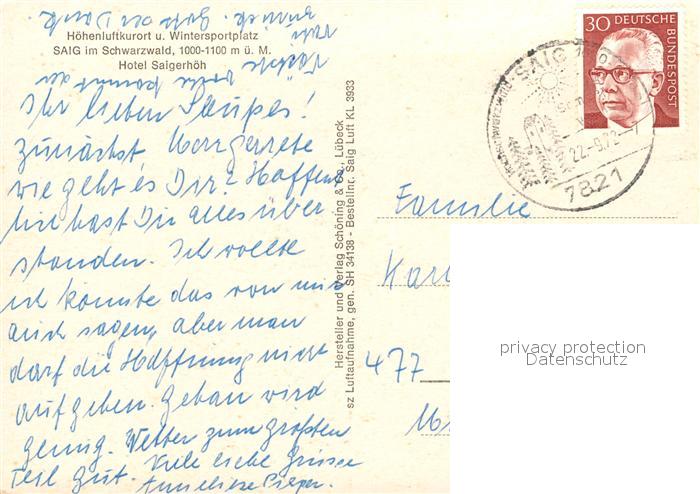 Höhenluftkurort u. Wintersportplatz
SAIG im Schwarzwald, 1000-1100 m ü. M.
Hotel Saigerhöh
Ihr lieben Saupes!
zunächst Margarete
wie geht es Dir? Hoffent
lich hast Du alles über
standen. Ich wollte
ich könnte das von mir
auch sagen, aber man
darf die Hoffnung nicht
aufgeben. Gebau wird
genug. Wetter zum größten
Teil gut. Viele liebe Grüsse
Anneliese Pieper.
Hersteller und Verlag Schöning & Co., Lübeck
sz Luftaufnahme, gen. SH 34138 - Bestellnr. Saig Luft KL 3933
30 DEUTSCHE BUNDESPOST
SAIG
22.-9.72
7821
Familie
477
privacy protection
Datenschutz